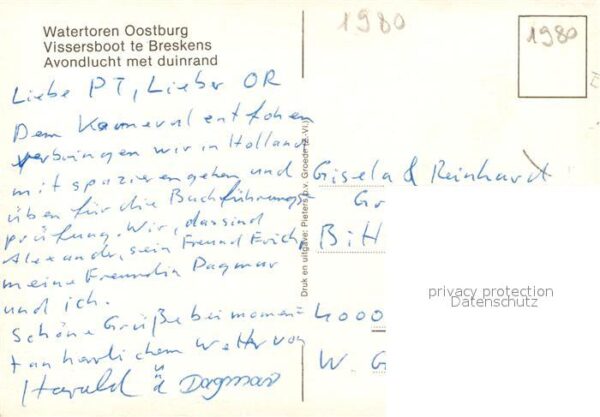 Watertoren Oostburg
Vissersboot te Breskens
Avondlucht met duinrand
1980
1980
Liebe PT, Lieber OR
Dem Karneval entflohen
verbringen wir in Holland
mit spazierengehen und
üben für die Buchführungs-
prüfung. Wir, das sind
Alexander, sein Freund Erich,
meine Freundin Dagmar
und ich.
Schöne Grüße bei momen-
tan herrlichem Wetter von
Harald u Dagmar
Druk en uitgave: Pieters b.v. Groede (Z.-Vl.)
Gisela & Reinhardt
Gr
Bitt
4000
W. G
privacy protection
Datenschutz